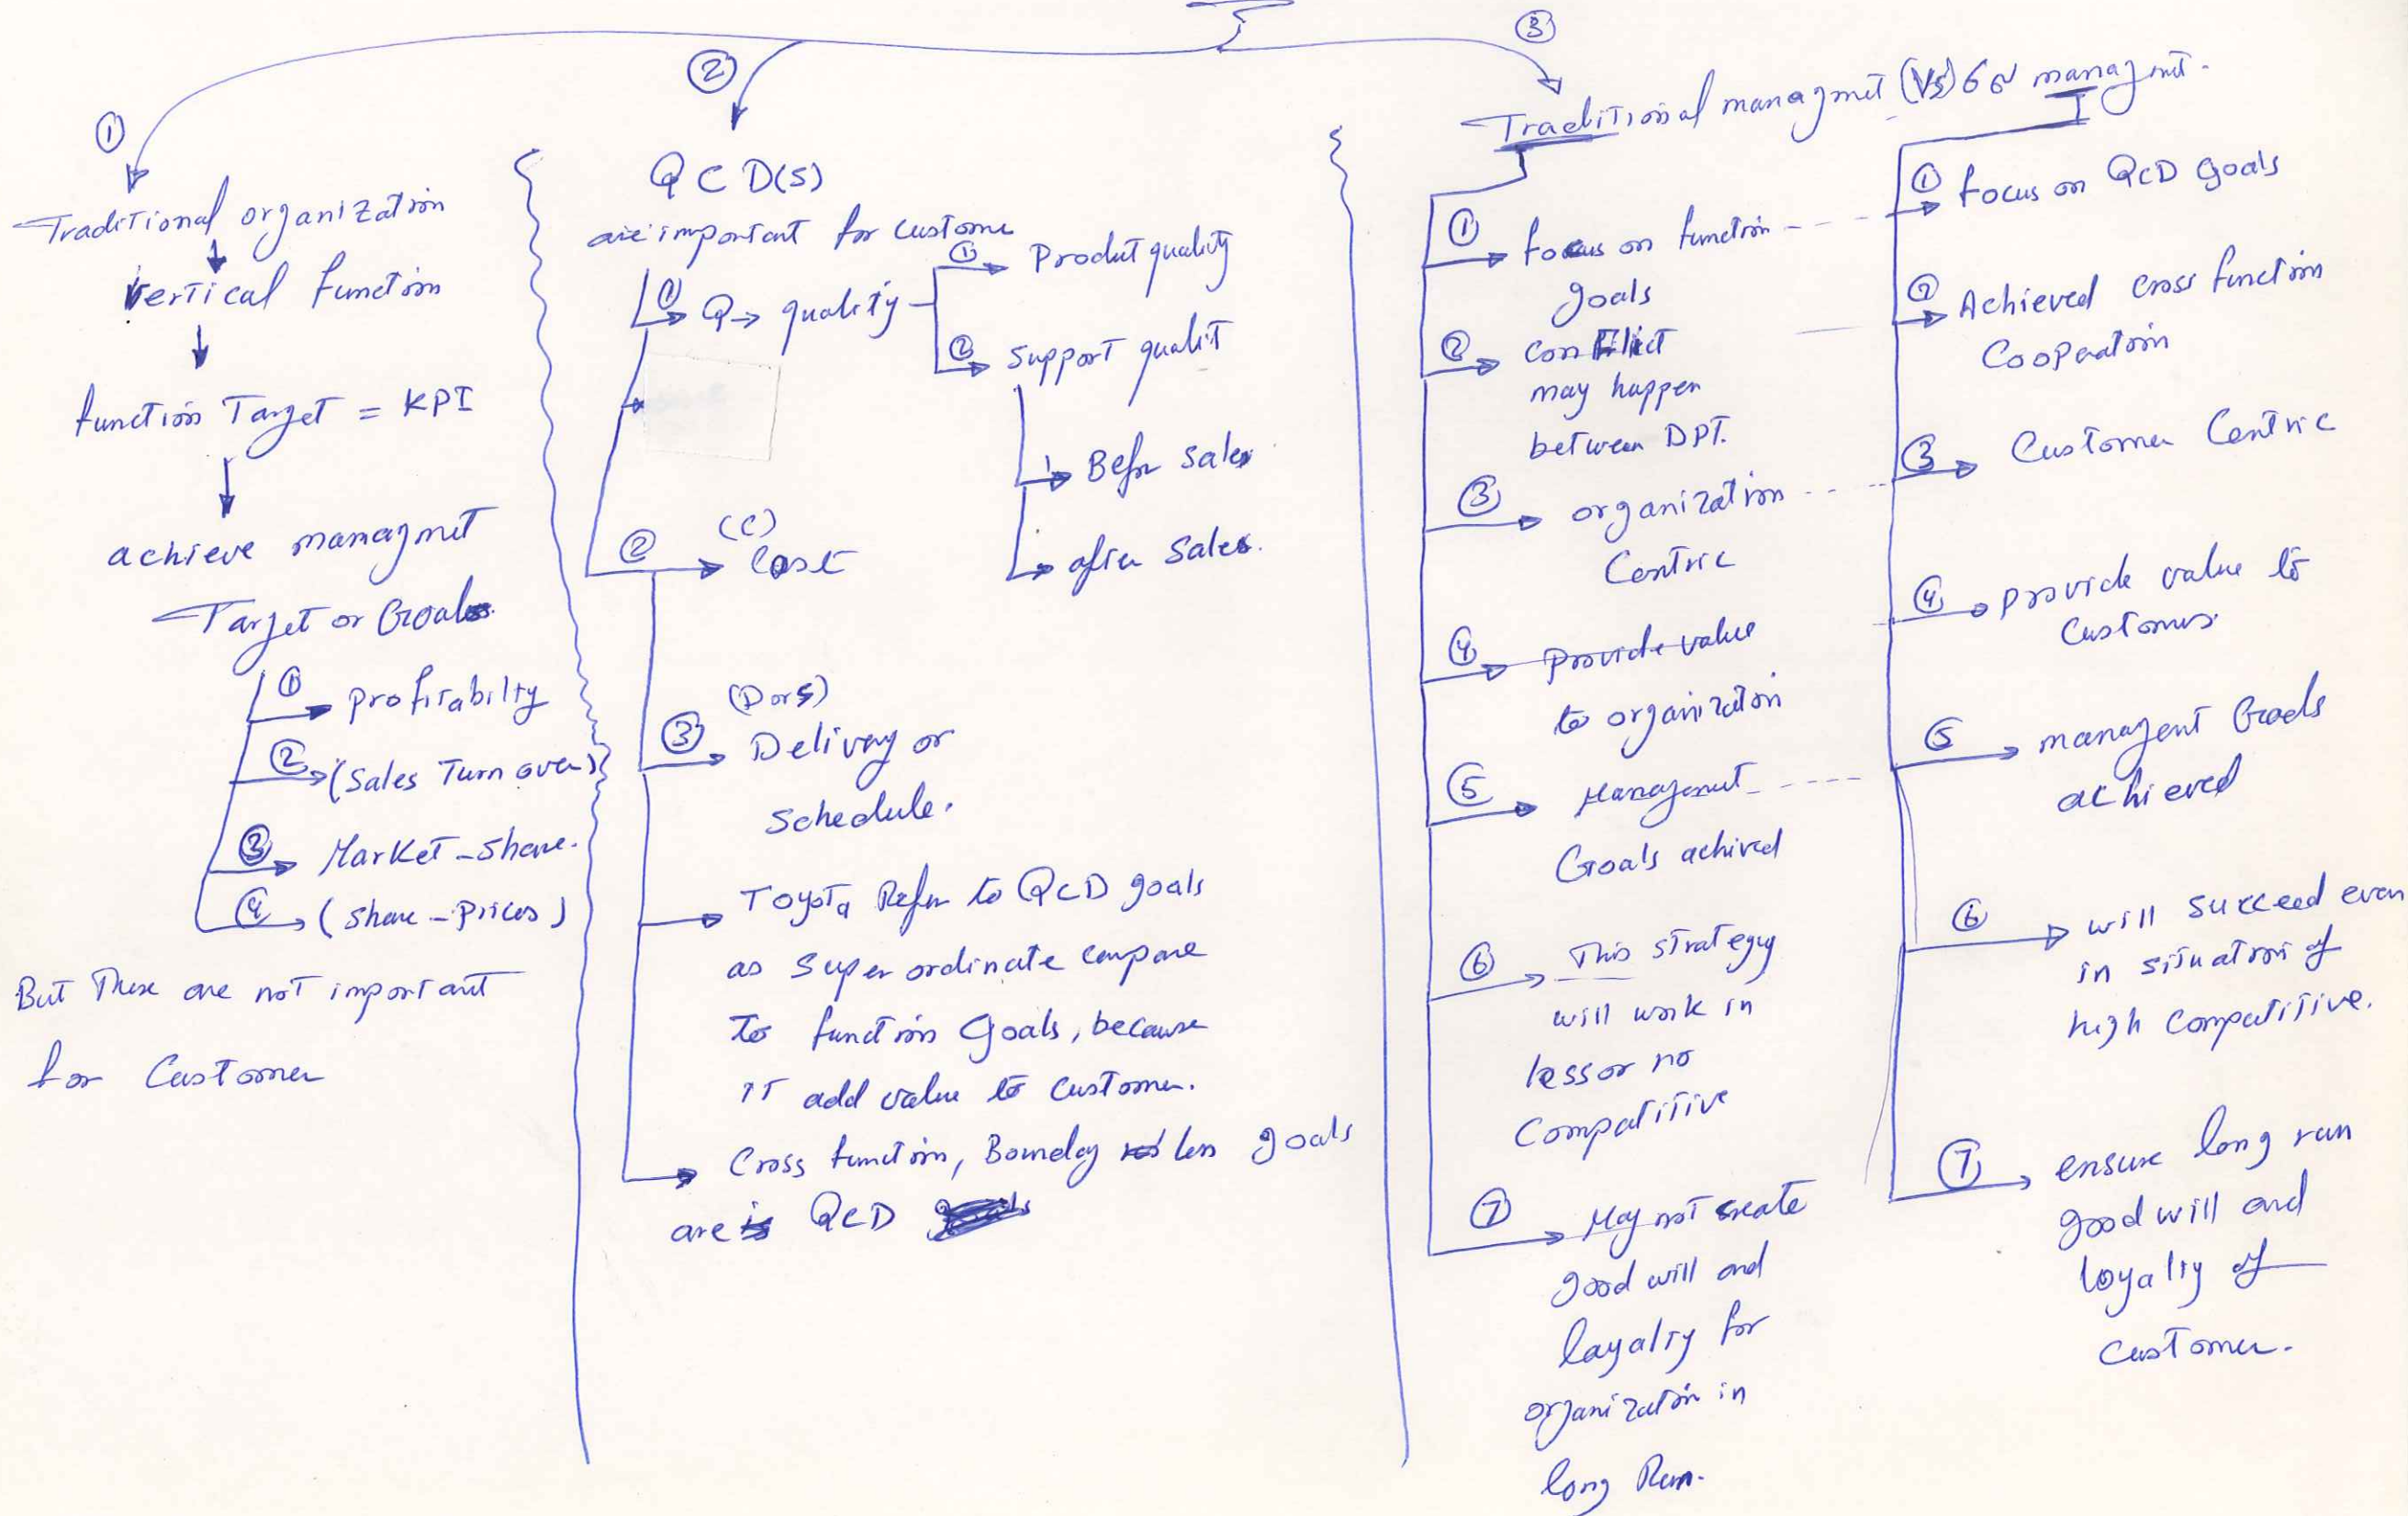 ①
Traditional organization
↓
Vertical function
↓
function Target = KPI
↓
achieve managmet
Target or Goals
① → profitabilty
② → (Sales Turn over)
③ → Market-share.
④ → (share-prices)
But These are not important
for Customer
②
QCD(S)
are important for custome
① → Q → quality
① → Produt quality
② → Support qualit
1 → Befor sales
→ after sales.
② → (C)
Cost
③ → (D or S)
Delivery or
schedule.
→ Toyota Refer to QCD goals
as Super ordinate compare
to function Goals, because
it add value to customer.
→ Cross function, Boundry less goals
are QCD
③
Traditional managmet (VS) 6σ managmet.
① → focus on function
goals
② → conflict
may happen
between DPT.
③ → organization
Centric
④ → provide value
to organization
⑤ → Managemet
Goals achived
⑥ → This strategy
will work in
less or no
Compatitive
⑦ → May not create
good will and
layalty for
organization in
long Run.
① → focus on QCD goals
② → Achieved cross function
Cooperation
③ → Customer Centric
④ → provide value to
Customers
⑤ → managent Goals
achieved
⑥ → will succeed even
in situation of
high compatitive.
⑦ → ensure long run
good will and
loyalty of
customer.